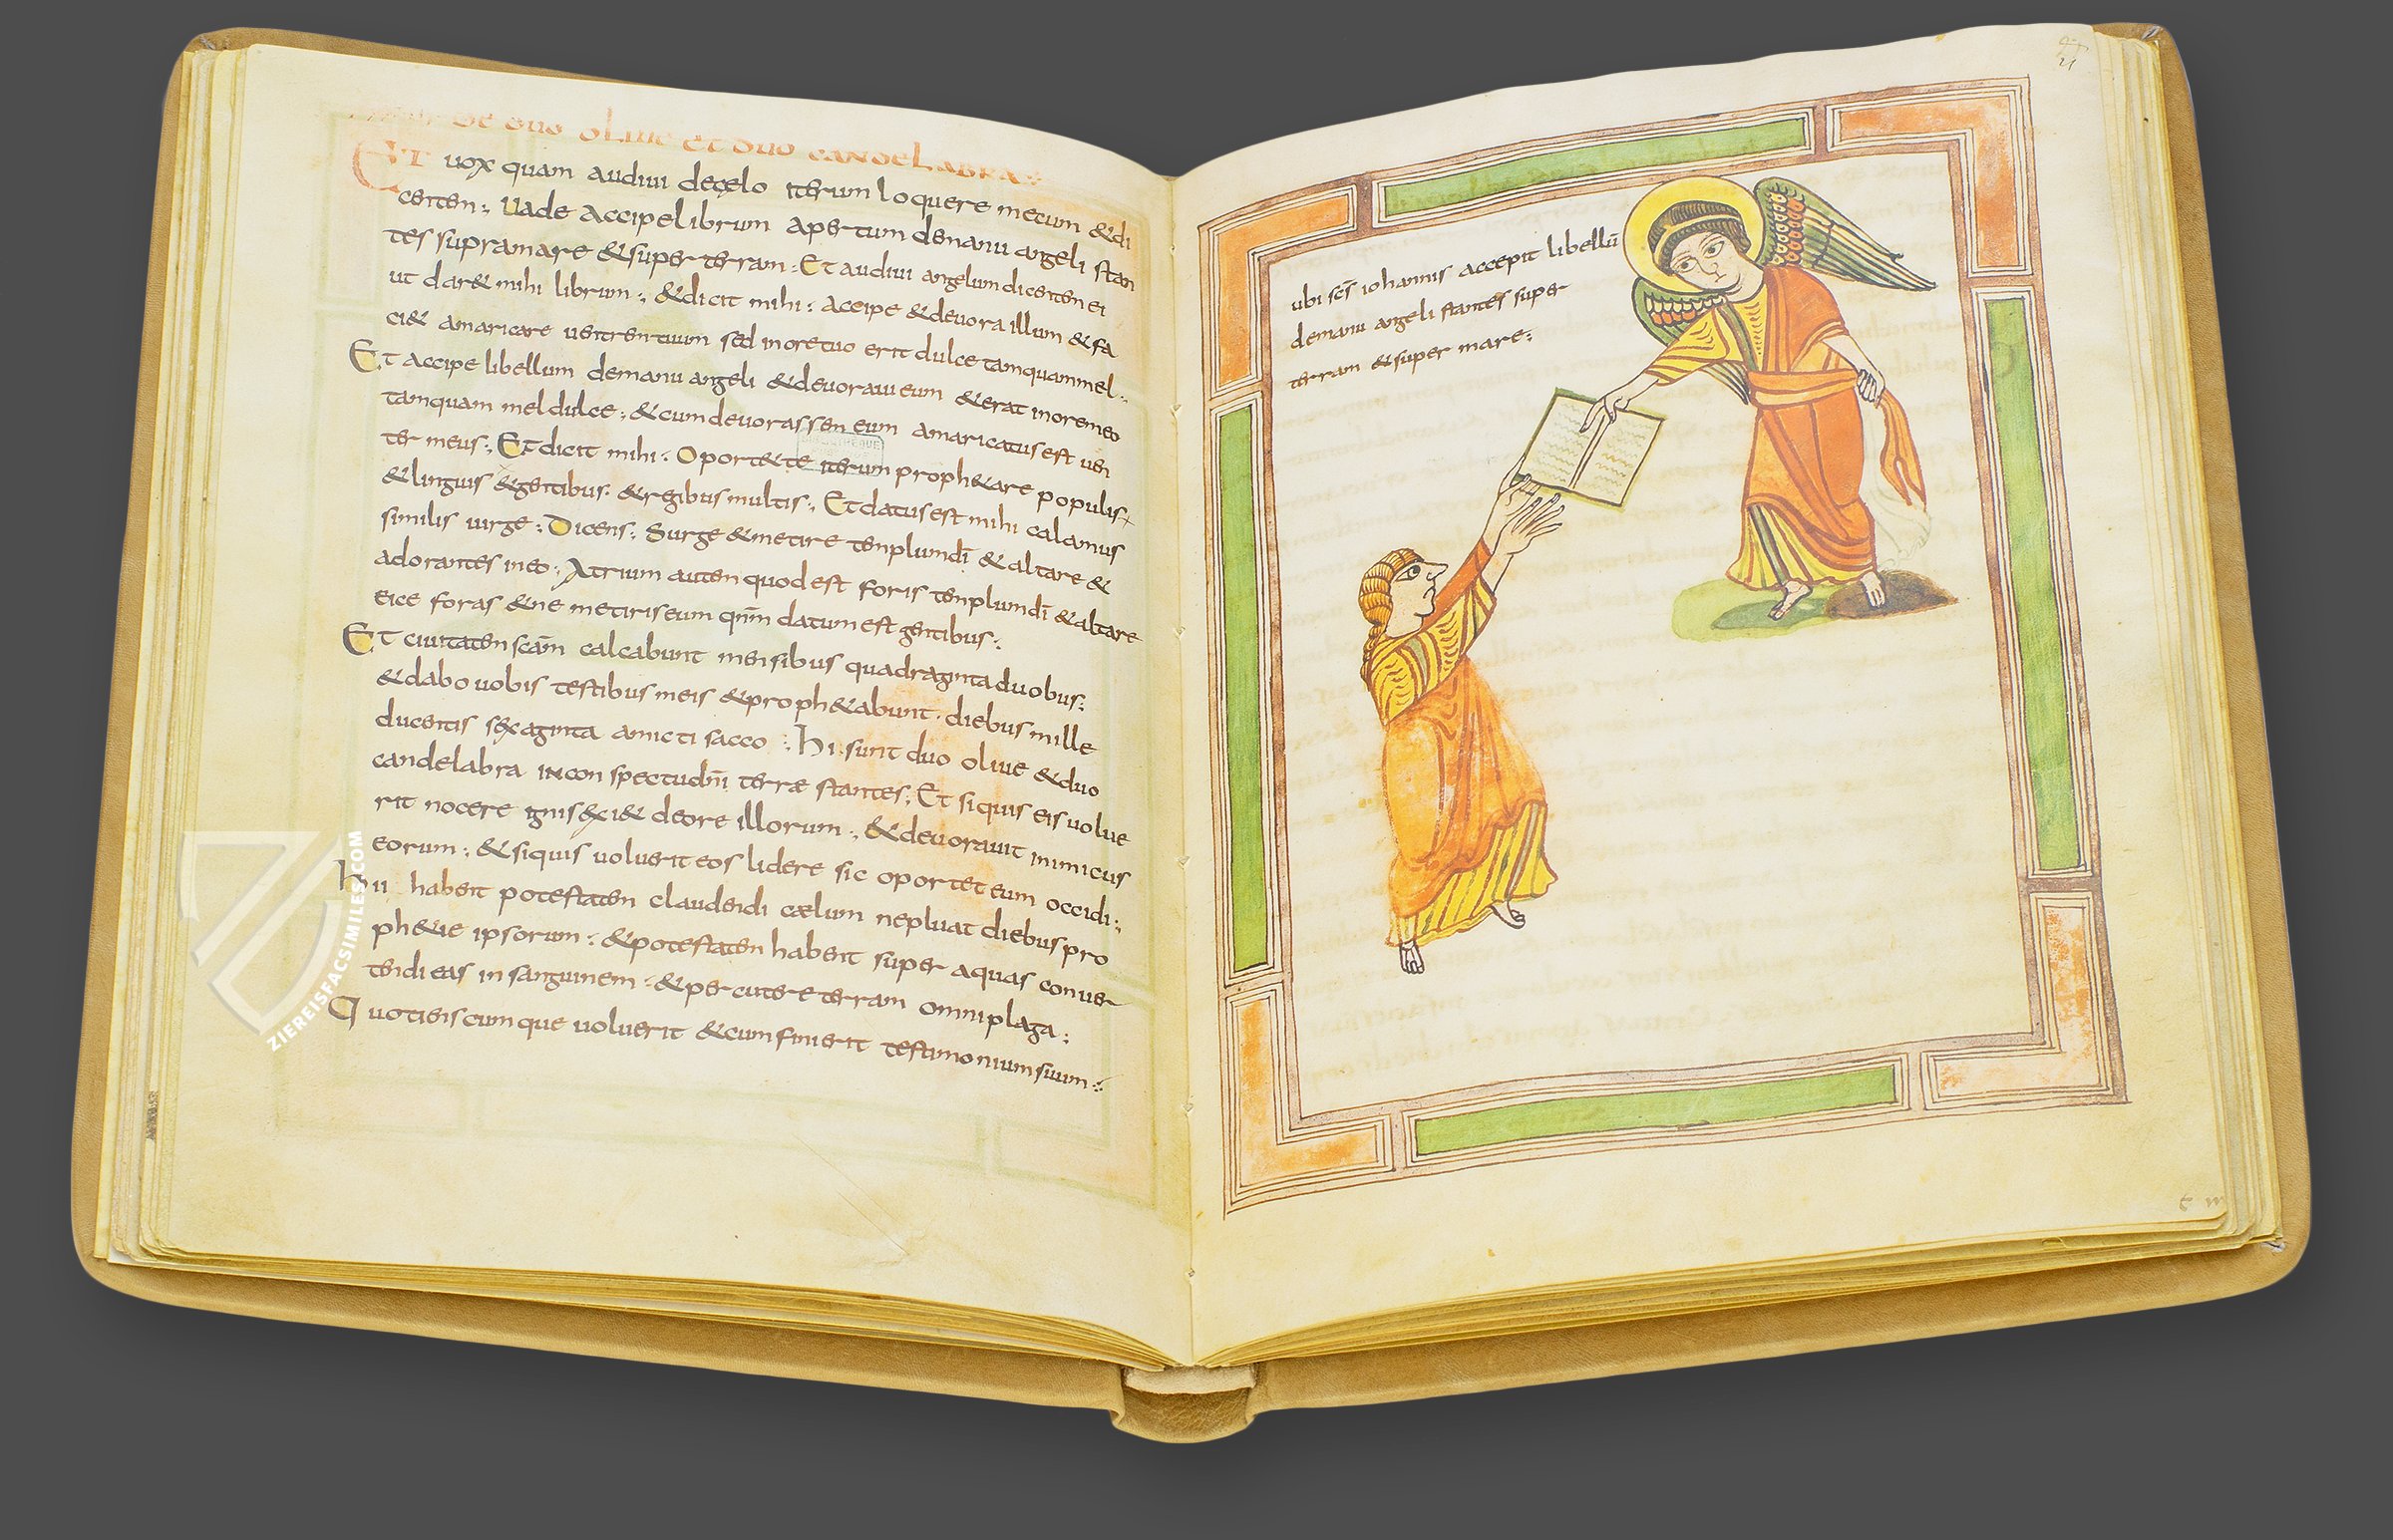 de duo oliue et duo candelabra
Et uox quam audiui de çelo iterum loquere mecum & di
centem: Uade accipe librum apertum demanu angeli stan
tes supra mare & super terram: Et audiui angelum dicentem ei
ut dar& mihi librum: & dicit mihi: accipe & deuora illum & fa
ci& amaricare uentrem tuum sed in ore tuo erit dulce tamquam mel:
Et accipe libellum demanu angeli & deuoraui eum & erat in ore meo
tamquam mel dulce: & cum deuorassem eum amaricatus est uen
ter meus: Et dicit mihi: Oport& te iterum proph&are populis
& linguis & gentibus: & regibus multis: Et datus est mihi calamus
similis uirge: Dicens: Surge & metire templum dī & altare &
adorantes in eo: Atrium autem quod est foris templum dī & altare
eice foras & ne metiris eum qnm̄ datum est gentibus:
Et ciuitatem scām calcabunt mensibus quadraginta duobus:
& dabo uobis testibus meis & proph&abunt diebus mille
ducentis sexaginta amicti sacco: hi sunt duo oliue & duo
candelabra in conspectu dn̄i terræ stantes: Et siquis eis uolue
rit nocere ignis exi& deore illorum: & deuorauit inimicus
eorum: & siquis uoluerit eos lidere sic oportet eum occidi:
hii habent potestatem claudendi cælum nepluat diebus pro
ph&ie ipsorum: & potestatem habent super aquas conuer
tendi eas in sanguinem: & percutere terram omni plaga:
Quotienscumque uoluerit & cum finierit testimonium suum:
BIBLIOTHEQUE
ZIEREISFACSIMILES.COM
ubi scs̄ iohannis accepit libellū
demanu angeli stantes super
terram & super mare: